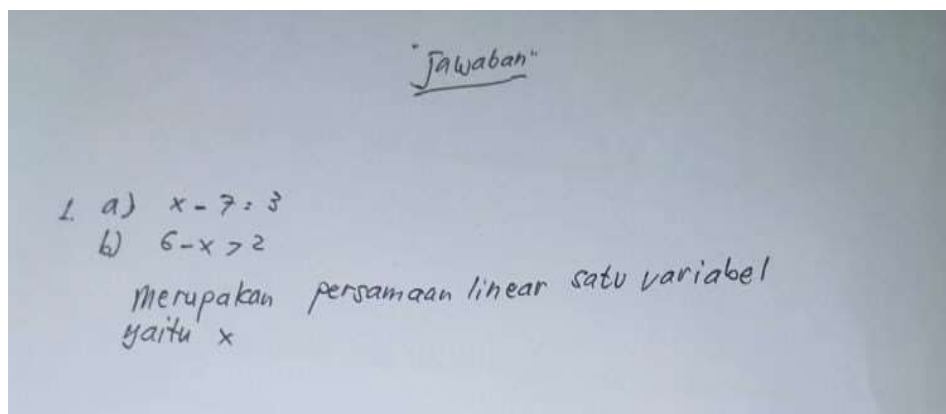 "Jawaban"
1. a) x - 7 = 3
b) 6 - x > 2
Merupakan persamaan linear satu variabel
yaitu x